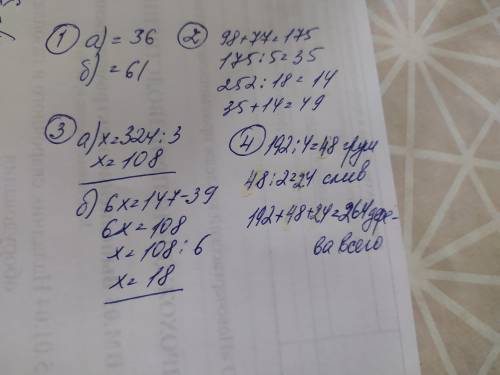 ① а) = 36
б) = 61
② 98+77=175
175:5=35
252:18=14
35+14=49
③ а) x=324:3
x=108
б) 6x=147-39
6x=108
x=108:6
x=18
④ 192:4=48 груш
48:2=24 слив
192+48+24=264 дере-
ва всего